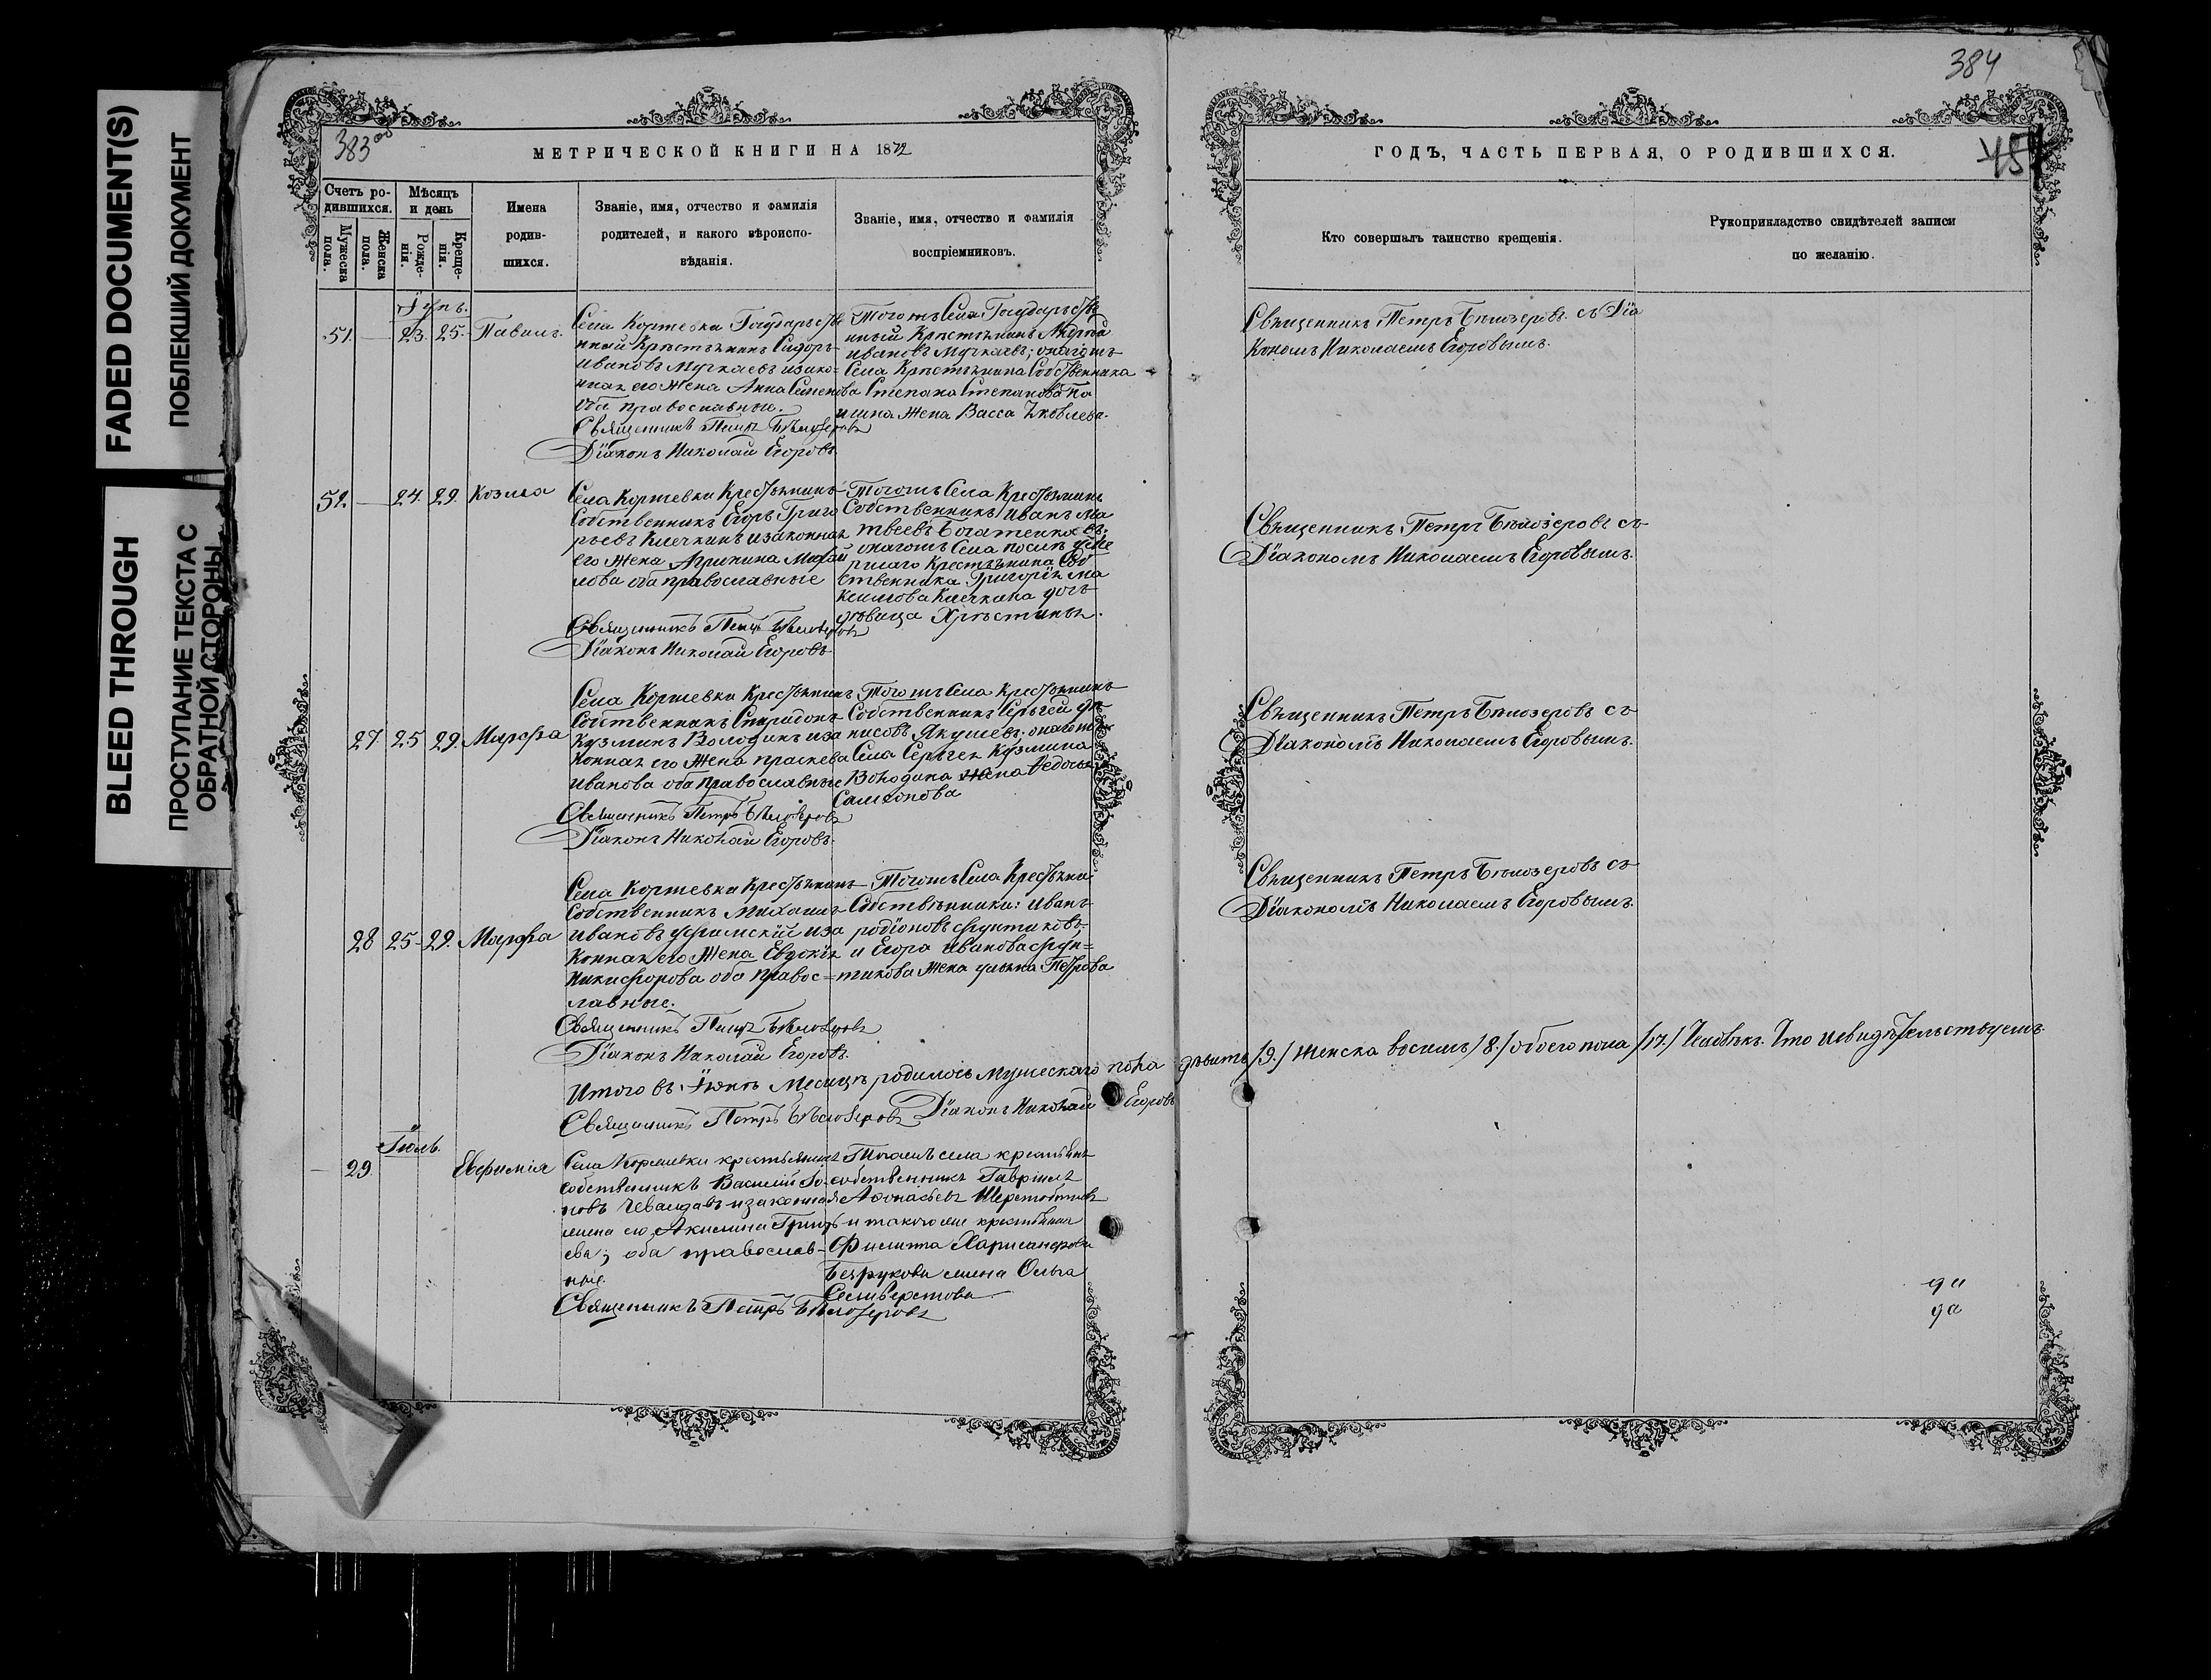 FADED DOCUMENT(S)
ПОБЛЕКШИЙ ДОКУМЕНТ
BLEED THROUGH
ПРОСТУПАНИЕ ТЕКСТА С
ОБРАТНОЙ СТОРОНЫ
383 об
МЕТРИЧЕСКОЙ КНИГИ НА 1872
Счетъ ро-
дившихся.
Мужеска
пола.
Женска
пола.
Мѣсяцъ
и день
Рожде-
нія.
Креще-
нія.
Имена
родив-
шихся.
Званіе, имя, отчество и фамилія
родителей, и какого вѣроиспо-
вѣданія.
Званіе, имя, отчество и фамилія
воспріемниковъ.
51. — 23. 25. Павилъ.
Села Коржевки Государстве
нный Крѣстьянинъ Сидоръ
Ивановъ Мучкаевъ изако=
нная его Жена Анна Семенова
оба православные.
Священникъ Петръ Бѣлозеровъ
Діаконъ Николай Егоровъ.
Тогожъ Села Государстве
нный Крѣстьянинъ
Ивановъ Мучкаевъ; онагожъ
Села Крѣстьянина Собственника
Степана Степанова
Жена Васса Яковлева.
52. — 24. 29. Козма
Села Коржевки Крестьянинъ
Собственникъ Егоръ Григо
рьевъ Клечкинъ изаконная
его Жена Агрипина
оба православные
Священникъ Петръ Бѣлозеровъ
Діаконъ Николай Егоровъ
Тогожъ Села Крестьянинъ
Собственникъ Иванъ Ма
твеевъ
онагожъ Села послѣ уме
ршаго Крестьянина Соб
ственника Григорія Ма
ксимова Клечкина дочь
дѣвица Хрѣстинья.
27. 25 29. Марфа
Села Коржевки Крестьянинъ
Собственникъ Спиридонъ
Кузминъ Володинъ иза
конная его Жена праскева
Иванова оба православные
Священникъ Петръ Бѣлозеровъ
Діаконъ Николай Егоровъ.
Тогожъ Села Крестьянинъ
Собственникъ Сергей Де
нисовъ Якушевъ; онагожъ
Села Сергея Кузмина
Володина Жена Федосья
Самсонова
28 25 29. Марфа
Села Коржевки Крестьянинъ
Собственникъ Михаилъ
Ивановъ Уфимскій иза
конная его Жена Евдокія
Никифорова оба правос=
лавные.
Священникъ Петръ Бѣлозеровъ
Діаконъ Николай Егоровъ.
Тогожъ Села Крестьяни
Собственники: Иванъ
родіоновъ Фунтиковъ,
и Егора Иванова Фун=
тикова Жена Ульяна Петрова
Итого въ Іюнѣ Месяцѣ родилось Мужескаго пола дѣвить /9./ Женска восимъ /8./ обоего пола /17./ Человѣкъ. Что исвидѣтельствуемъ.
Священникъ Петръ Бѣлозеровъ Діаконъ Николай Егоровъ
Іюль.
29 Евфимія
Села Коржевки крестьянинъ
собственникъ Василій
изаконная
жена его Акилина Григорь
ева; оба православ-
ные.
Священникъ Петръ Бѣлозеровъ
Тогожъ села крестьянинъ
собственникъ Гавріилъ
Афонасьевъ
и такогоже крестьянина
Филиппа
Безрукова жена Ольга
Селиверстова
384
ГОДЪ, ЧАСТЬ ПЕРВАЯ, О РОДИВШИХСЯ.
Кто совершалъ таинство крещенія.
Рукоприкладство свидѣтелей записи
по желанію.
Свѣщенникъ Петръ Бѣлозеровъ съ Діа
кономъ Николаемъ Егоровымъ.
Свѣщенникъ Петръ Бѣлозеровъ съ
Діакономъ Николаемъ Егоровымъ.
Свѣщенникъ Петръ Бѣлозеровъ съ
Діакономъ Николаемъ Егоровымъ.
Свѣщенникъ Петръ Бѣлозеровъ съ
Діакономъ Николаемъ Егоровымъ.
да
да